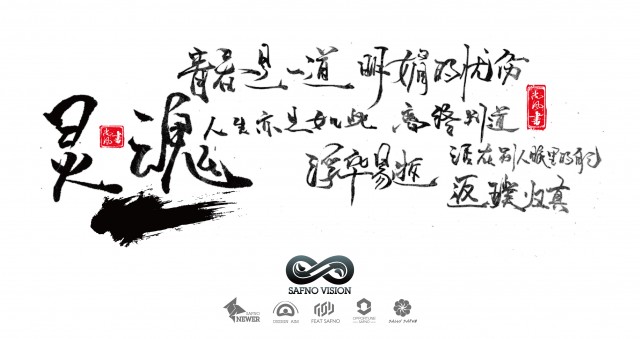 青春是一道 明媚的忧伤
灵魂
人生亦是如此
浮华易逝
活在别人眼里的
返璞归真
SAFNO VISION
SAFNO
NEWER
FEAT SAFNO